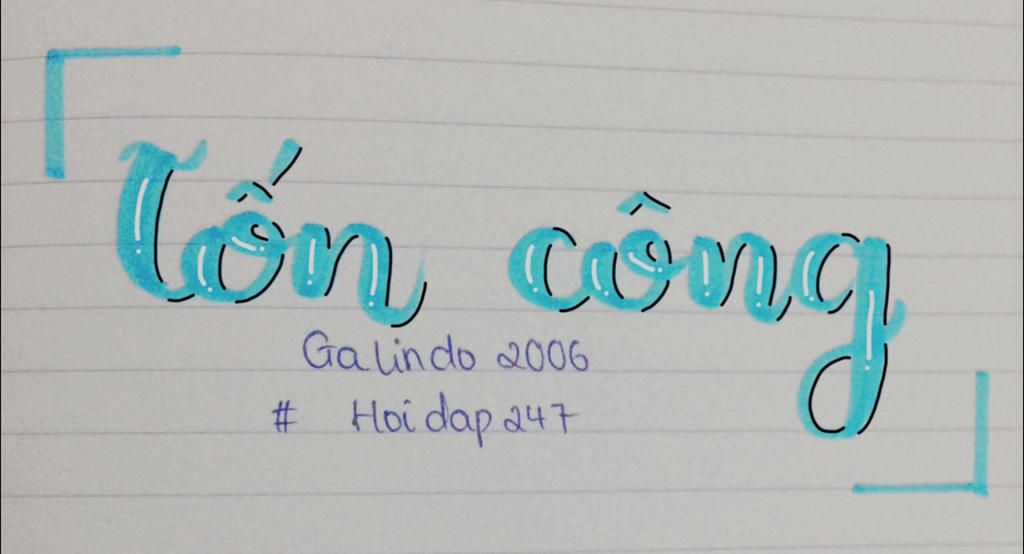 Tốn công
Galindo 2006
# Hoidap247